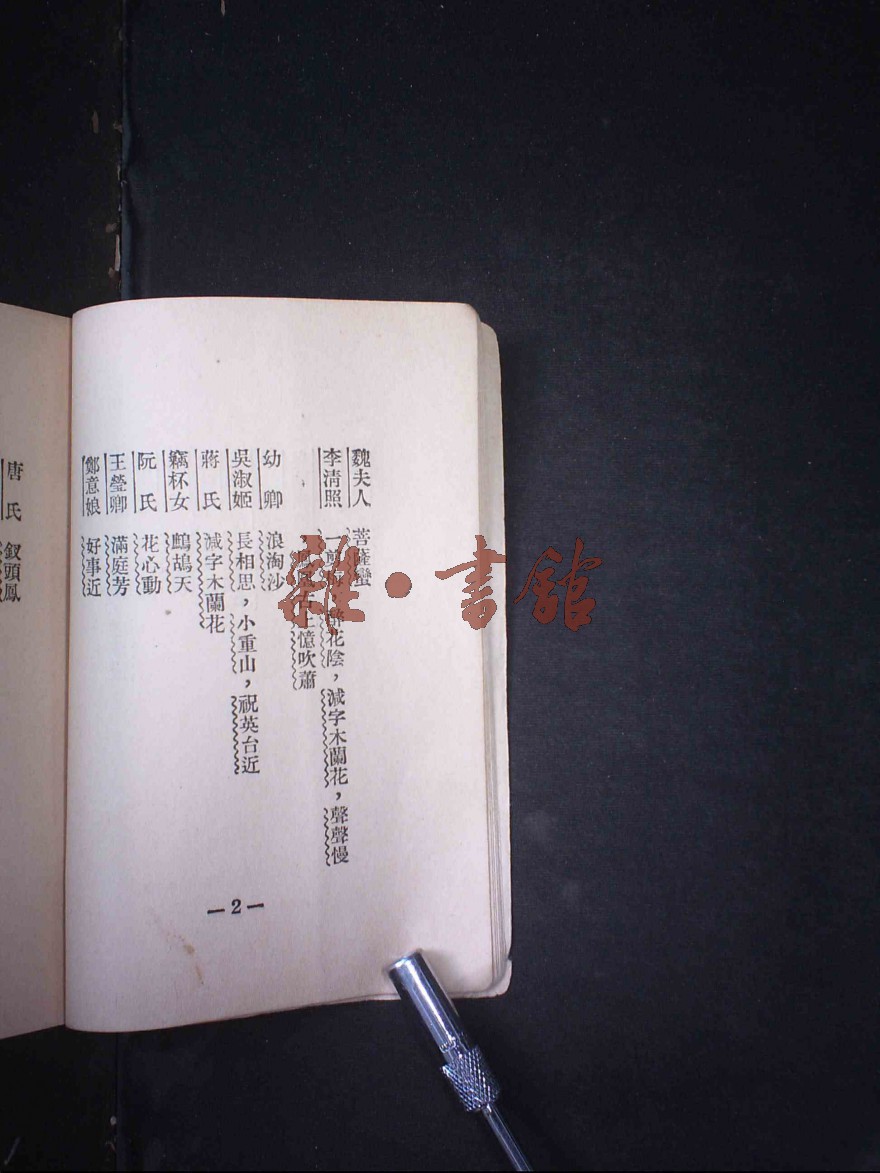 魏夫人 菩薩蠻
李清照 一剪梅，醉花陰，減字木蘭花，聲聲慢
憶吹蕭
幼卿 浪淘沙
吳淑姬 長相思，小重山，祝英台近
蔣氏 減字木蘭花
竊杯女 鷓鴣天
阮氏 花心動
王瑩卿 滿庭芳
鄭意娘 好事近
—2—
唐氏 釵頭鳳
雜·書館